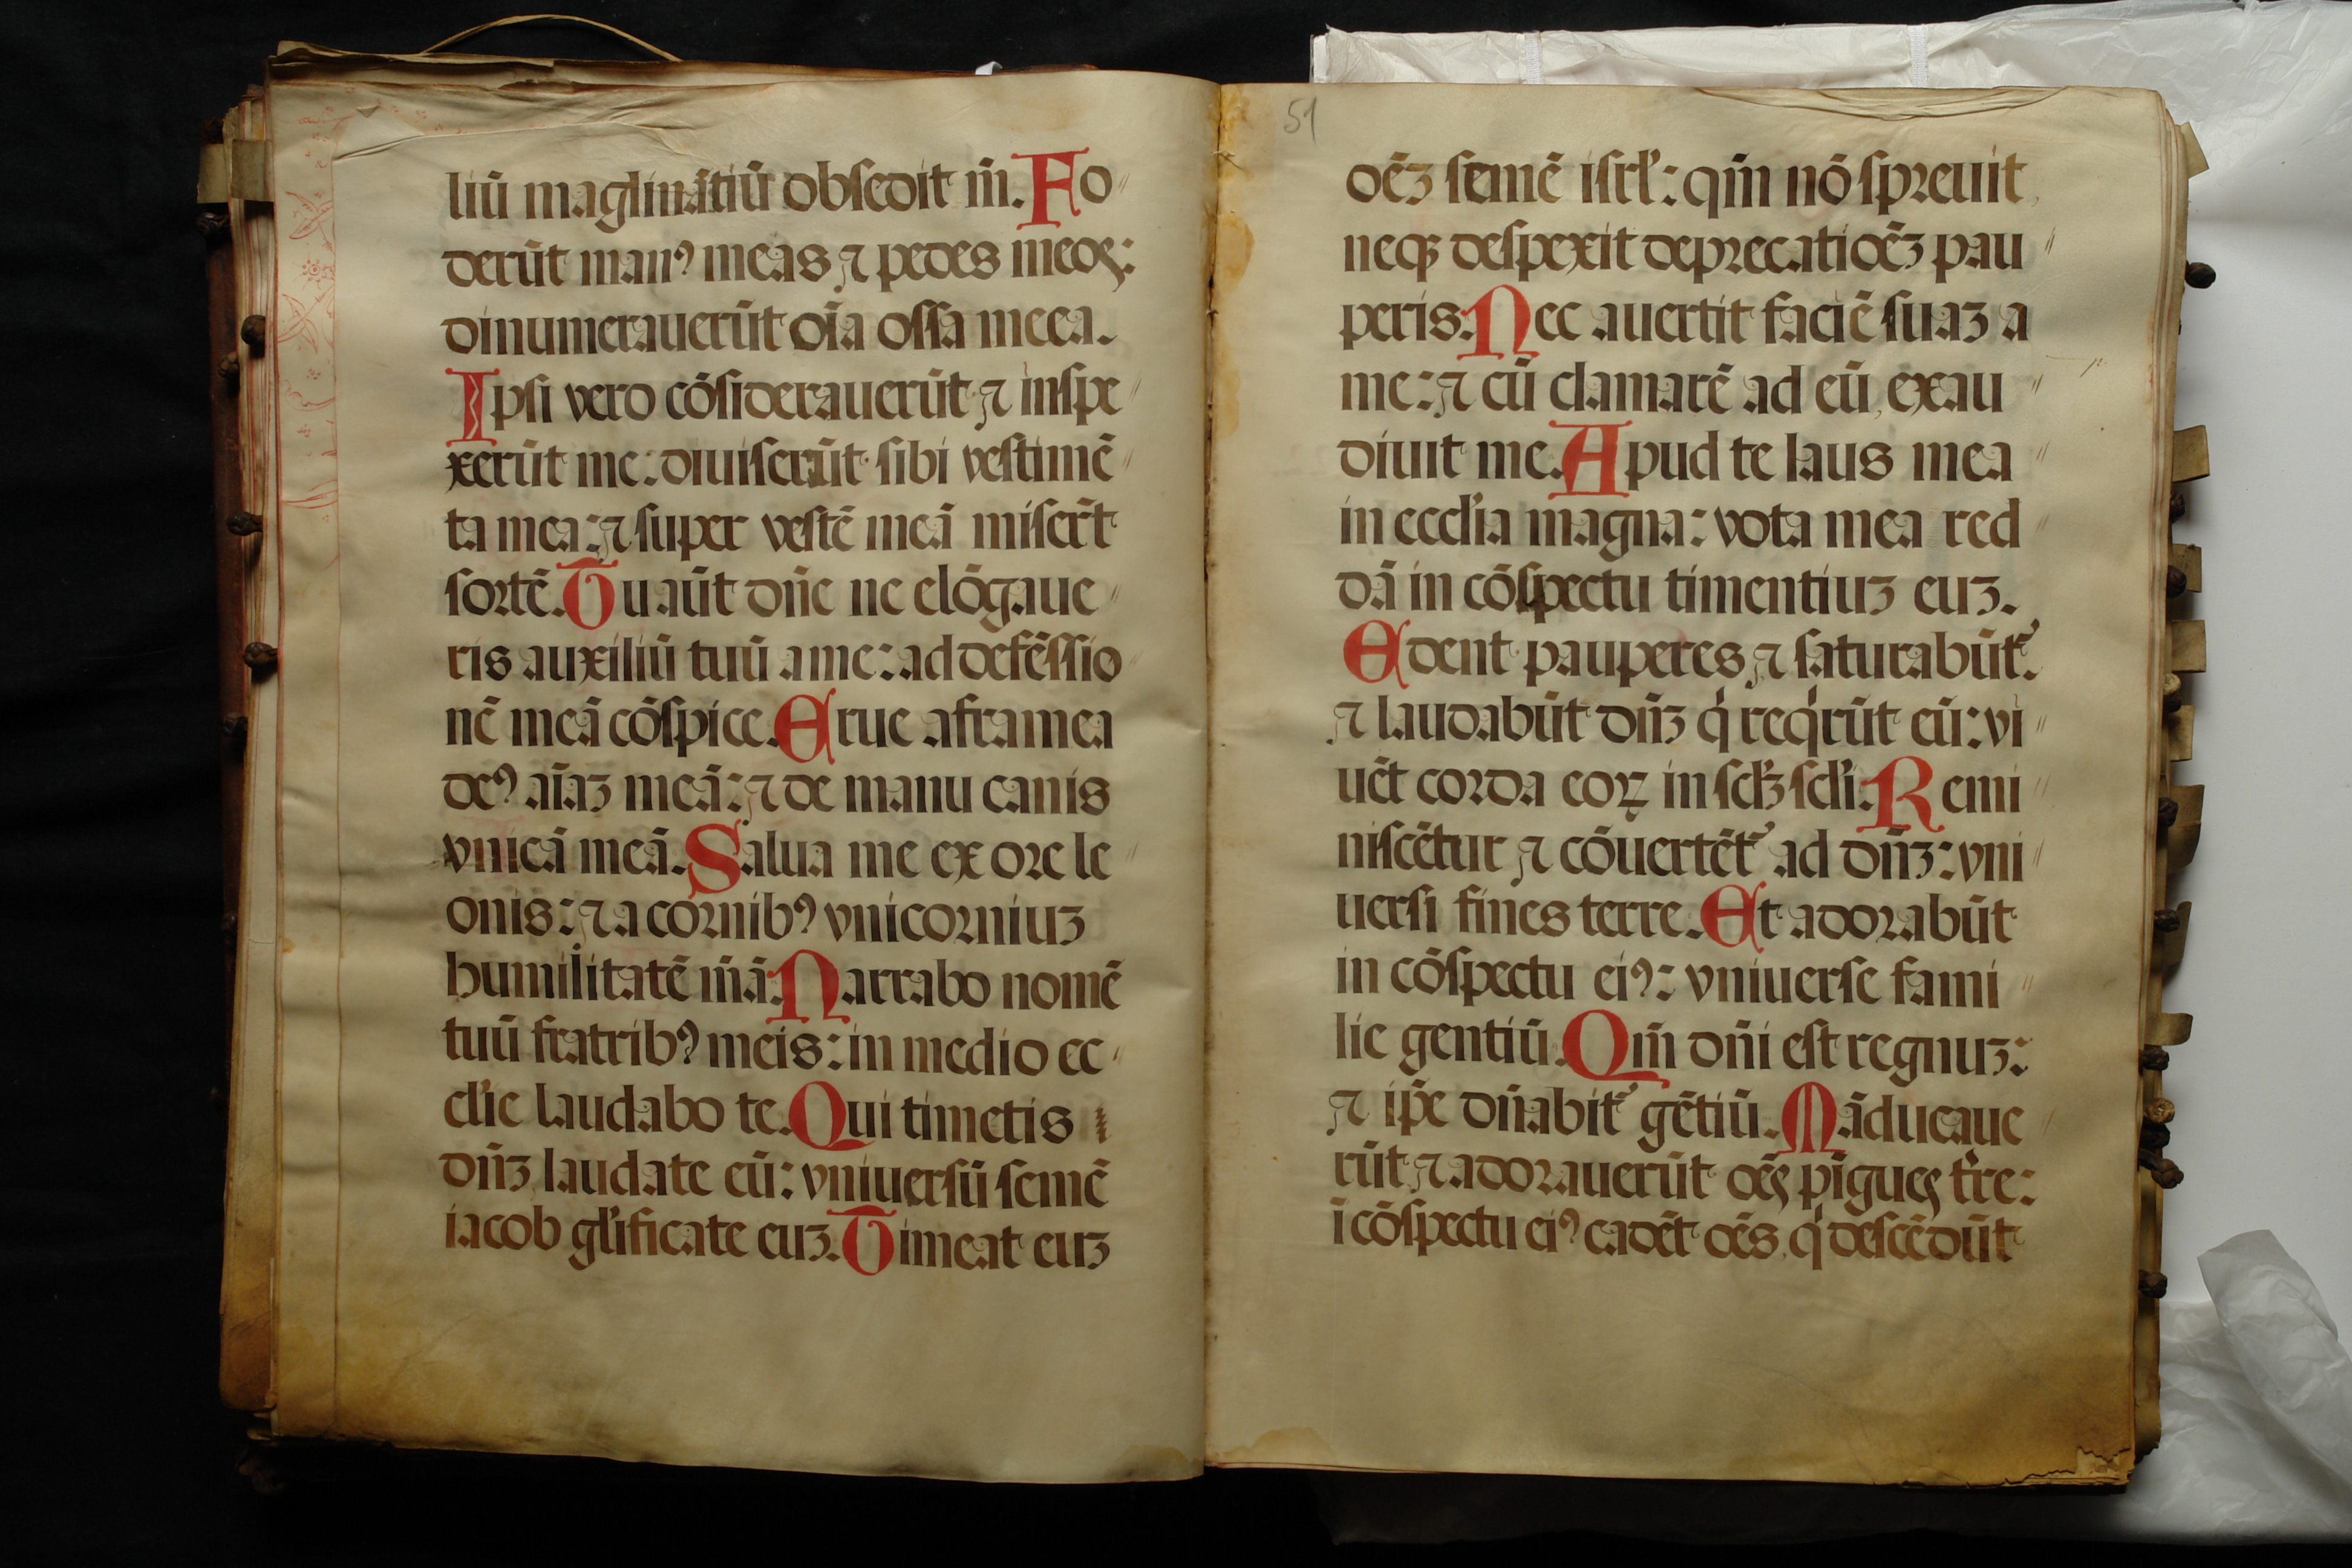 liū maglinātiū obsedit m̄. Fo
derūt manꝰ meas ⁊ pedes meos:
dinumerauerūt oīa ossa meea.
Ipsi vero cōsiderauerūt ⁊ inspe
xerūt me: diuiserūt sibi vestimē
ta mea: ⁊ super vestē meā miser̄t
sortē. Tu aūt dn̄e ne elōgaue
ris auxiliū tuū a me: ad defēssio
nē meā cōspice. Erue a framea
deꝰ aīaz meā: ⁊ de manu canis
vnicā meā. Salua me ex ore le
onis: ⁊ a cornibꝰ vnicorniuz
humilitatē m̄ā. Narrabo nomē
tuū fratribꝰ meis: in medio ec
cl'ie laudabo te. Qui timetis
dn̄z laudate eū: vniuersū semē
iacob gl'ificate euz. Timeat euz
51
oēz semē isrl': qm̄ nō spreuit
neqꝫ despexit deprecatiōez pau
peris. Nec auertit faciē suaz a
me: ⁊ cū clamarē ad eū, exau
diuit me. Apud te laus mea
in eccl'ia magna: vota mea red
dā in cōspectu timentiuz euz.
Edent pauperes ⁊ saturabūt᷑.
⁊ laudabūt dn̄z qͥ reqͥrūt eū: vi
uēt corda eoꝝ in scl'ꝫ scl'i. Remi
niscētur ⁊ cōuertēt᷑ ad dn̄z: vni
uersi fines terre. Et adorabūt
in cōspectu eiꝰ: vniuerse fami
lie gentiū. Qm̄ dn̄i est regnuz:
⁊ ip̄e dn̄abit᷑ gētiū. Māducaue
rūt ⁊ adorauerūt oēs pīgues tr̄re:
ī cōspectu eiꝰ cadēt oēs, qͥ descēdūt